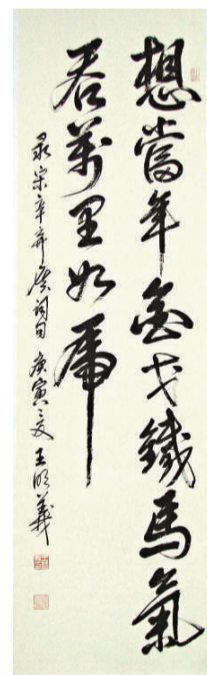 想當年金戈鐵馬氣
吞萬里如虎
录宋辛弃疾词句 庚寅之夏 王明義